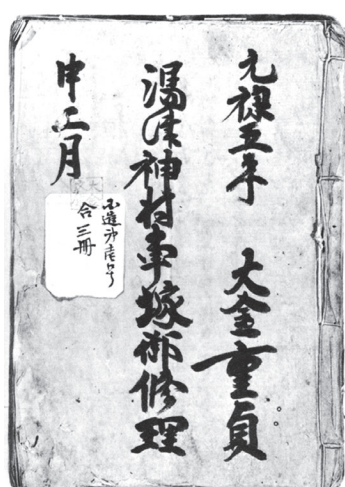 元禄五年 大金重貞
湯津神村車塚御修理
申 月
合三冊